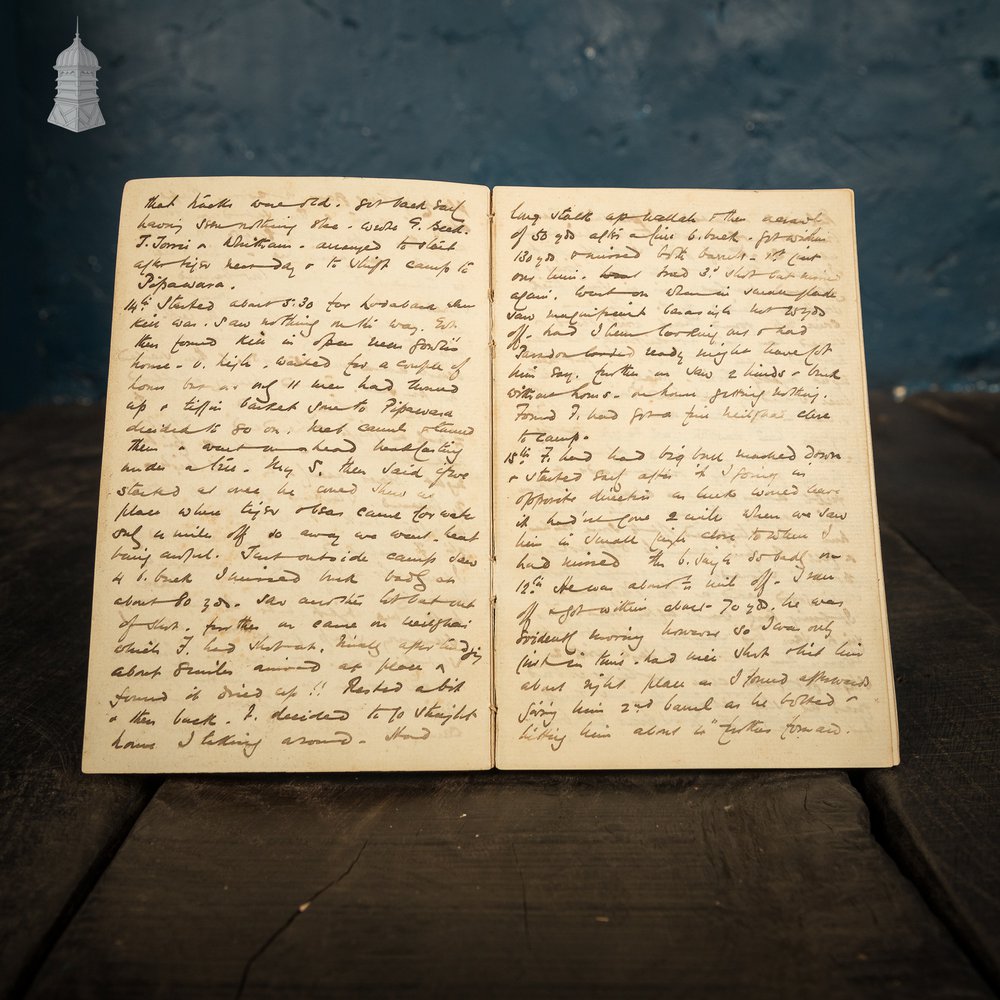 that tracks were old. Got back early
having seen nothing else. wrote G. Reed.
J. Torrie & Whitham. arranged to start
after tiger next day & to shift camp to
Pipawara.
14th Started about 5.30 for Kodabara when
kill was. Saw nothing on the way. Got
then found kill in open near
house. v. high. waited for a couple of
hours but as only 11 men had turned
up & tiffin basket gone to Pipawara
decided to go on. Met camels & turned
them & went on ahead breakfasting
under a tree. S. then said if we
started at once he could show us
place where tiger always came for water
only a mile off so away we went. heat
being awful. Just outside camp saw
4 b. buck I missed buck badly at
about 80 yds. Saw another lot but out
of shot. further on came on neilghai
which F. had shot at. Finally after
about 8 miles arrived at place &
found it dried up!! Rested a bit
& then back. F. decided to go straight
home I taking around. Had
long stalk up nullah & then a crawl
of 50 yds after a fine b. buck. Got within
130 yds & missed both barrels. 1st just
over him. tried 3rd shot but missed
again. Went on when in same glade
saw magnificent barasingh not 100 yds
off. had I been looking out & had
loaded ready might have got
him easy. further on saw 2 hinds & buck
without horns. on home getting nothing.
Found F. had got a fine neilghai close
to camp.
15th F. had had big bull marked down
& started early after it I going in
opposite direction as luck would have
it hadn't gone 2 miles when we saw
him in small close to where I
had missed the b. singh so badly on
12th He was about ½ mile off. I ran
off & got within about 70 yds. he was
evidently moving however so I was only
just in time. had nice shot & hit him
about right place as I found afterwards
giving him 2nd barrel as he bolted &
hitting him about 10" further forward.